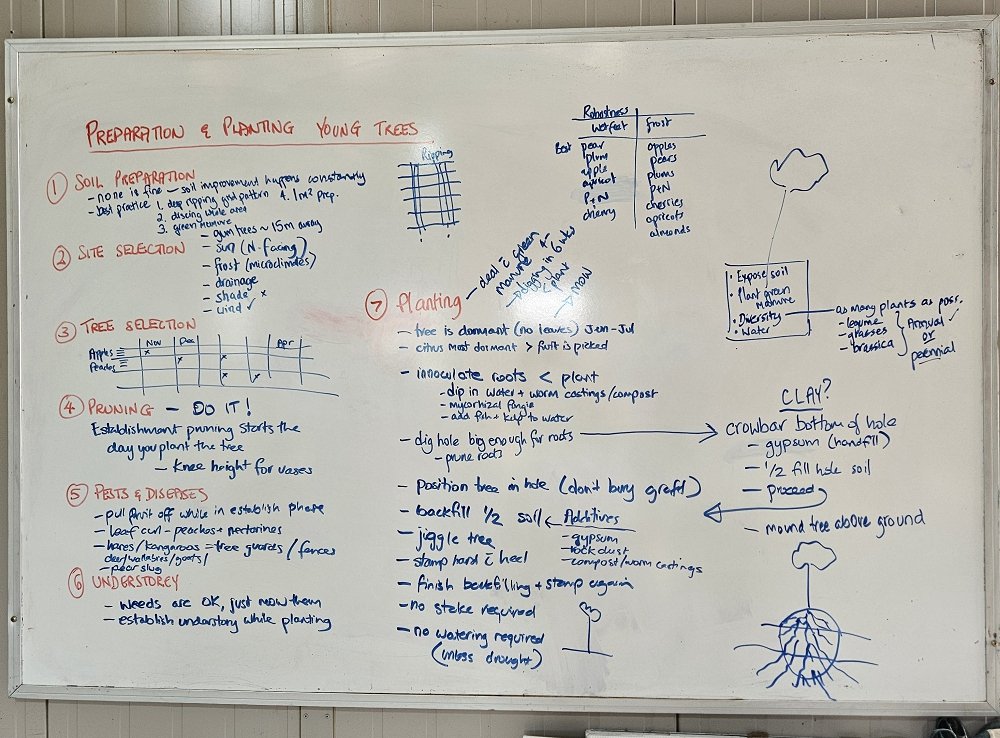 PREPARATION & PLANTING YOUNG TREES
① SOIL PREPARATION
- none is fine - soil improvement happens constantly
- best practice 1. deep ripping grid pattern 4. 1m² prep.
2. discing whole area
3. green manure
② SITE SELECTION
- gum trees ~ 15m away
- sun (N-facing)
- frost (microclimates)
- drainage
- shade ×
- wind ✓
③ TREE SELECTION
Nov Dec Apr
Apples
④ PRUNING - DO IT!
Establishment pruning starts the
day you plant the tree
- Knee height for vases
⑤ PESTS & DISEASES
- pull fruit off while in establish phase
- leaf curl - peaches + nectarines
- hares/kangaroos = tree guards / fences
deer/wallabies/goats/
- pear slug
⑥ UNDERSTOREY
- weeds are OK, just mow them
- establish understory while planting
Ripping
Robustness
wetfeet frost
Best pear apples
plum pears
apple plums
apricot P+N
P+N cherries
cherry apricots
almonds
⑦ Planting
- deal c̄ green
manure
- digging in 6 wks
< plant
→ mow
- tree is dormant (no leaves) Jun-Jul
- citrus most dormant > fruit is picked
- innoculate roots < plant
- dip in water + worm castings/compost
- mycorhizal fungie
- add fish + kelp to water
- dig hole big enough for roots
- prune roots
- position tree in hole (don't bury graft)
- backfill 1/2 soil ← Additives
- gypsum
- rock dust
- compost/worm castings
- jiggle tree
- stamp hard c̄ heel
- finish backfilling + stamp again
- no stake required
- no watering required
(unless drought)
• Expose soil
• Plant green
manure
• Diversity
• Water
as many plants as poss.
- legume
- grasses
- brassica
Annual
or
perennial
CLAY?
crowbar bottom of hole
- gypsum (handfull)
- 1/2 fill hole soil
- proceed
- mound tree above ground